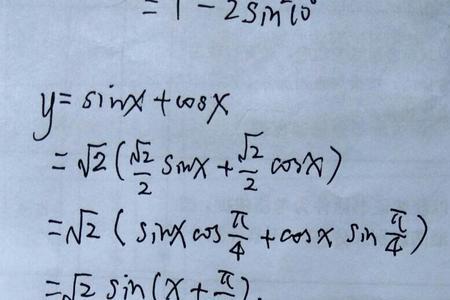 = 1 - 2sin²10°
y = sinx + cosx
= √2 ( √2/2 sinx + √2/2 cosx )
= √2 ( sinx cos π/4 + cosx sin π/4 )
= √2 sin ( x + π/